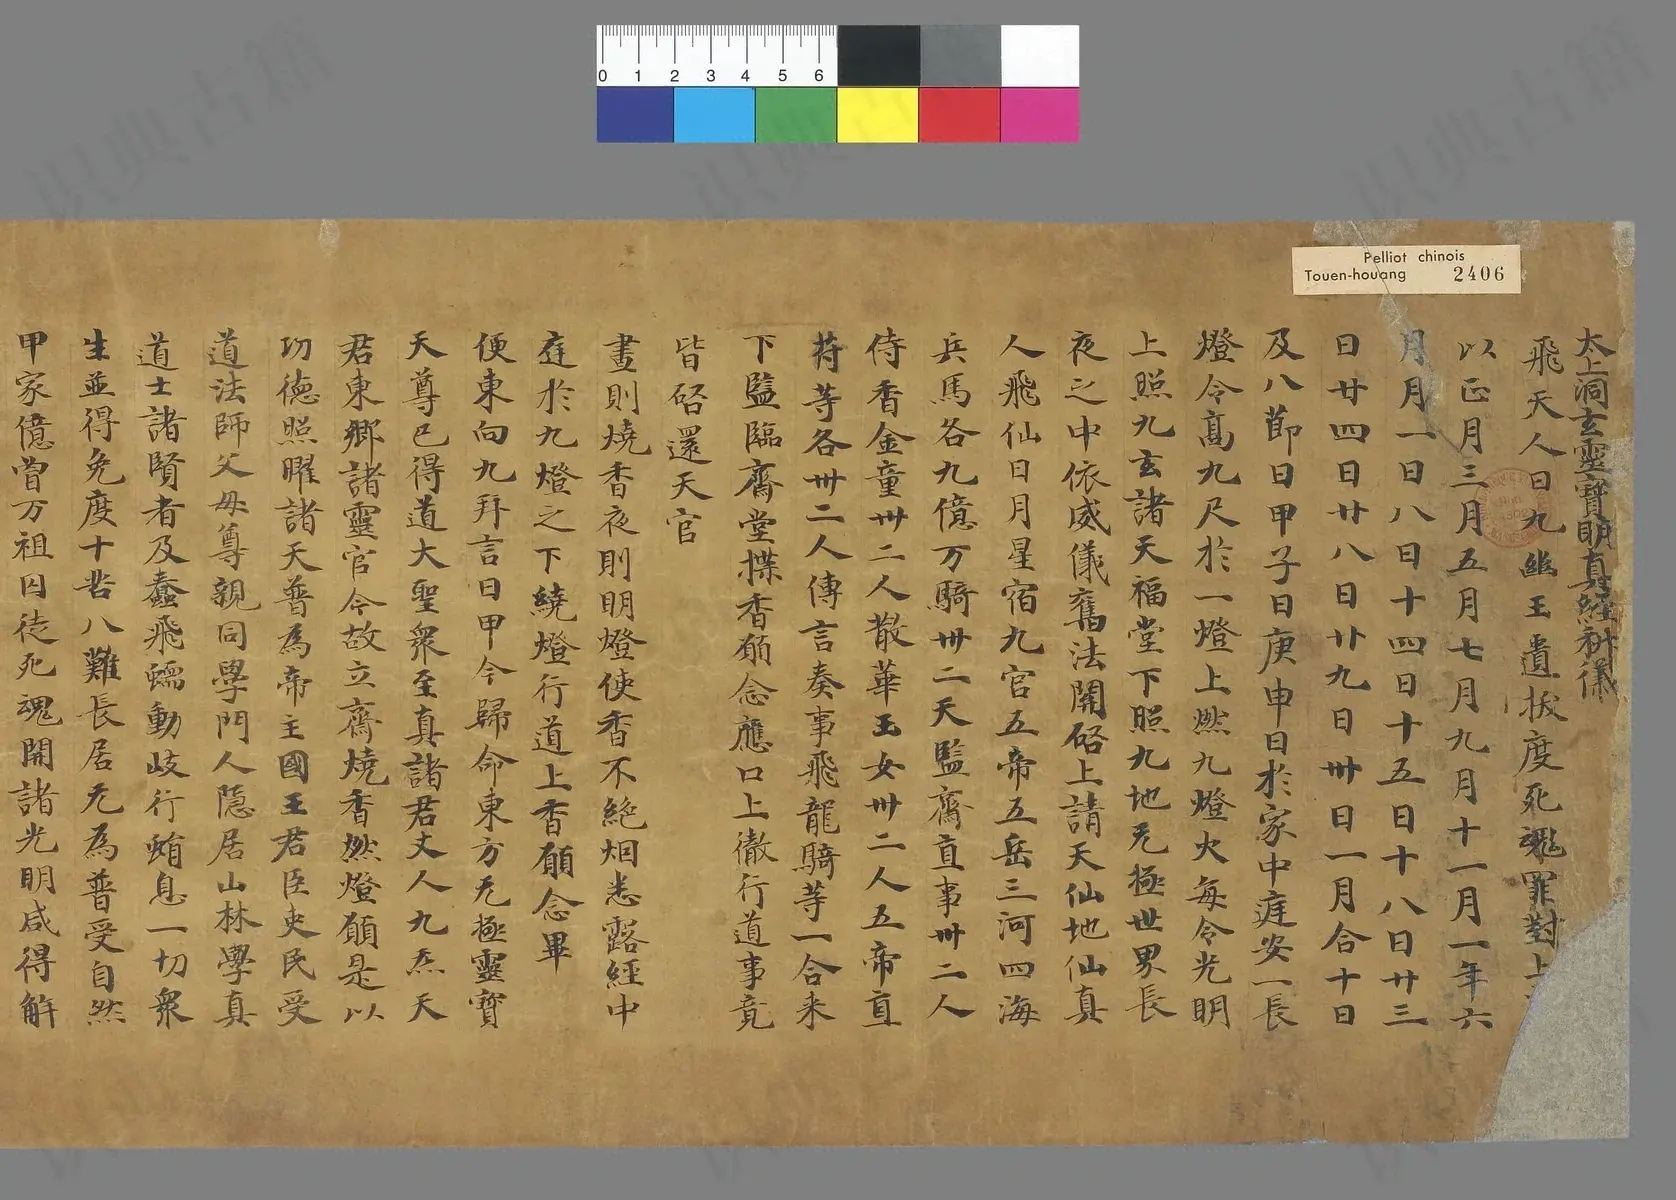 Pelliot chinois
Touen-houang 2406
0 1 2 3 4 5 6
太上洞玄靈寶明真經科儀
飛天人曰九幽玉遺拔度死魂罪對上
以正月三月五月七月九月十一月一年六
月月一日八日十四日十五日十八日廿三
日廿四日廿八日廿九日卅日一月合十日
及八節日甲子日庚申日於家中庭安一長
燈令高九尺於一燈上燃九燈火每令光明
上照九玄諸天福堂下照九地无極世界長
夜之中依威儀舊法開啓上請天仙地仙真
人飛仙日月星宿九宮五帝五岳三河四海
兵馬各九億万騎卅二天監齋直事卅二人
侍香金童卅二人散華玉女卅二人五帝直
符等各卅二人傳言奏事飛龍騎等一合来
下監臨齋堂揲香願念應口上徹行道事竟
皆啓還天官
晝則燒香夜則明燈使香不絕烟悉露經中
庭於九燈之下繞燈行道上香願念畢
便東向九拜言曰甲今歸命東方无極靈寶
天尊已得道大聖衆至真諸君丈人九炁天
君東鄉諸靈官今故立齋燒香燃燈願是以
功德照曜諸天普為帝主國王君臣吏民受
道法師父母尊親同學門人隱居山林學真
道士諸賢者及蠢飛蠕動岐行蜎息一切衆
生並得免度十苦八難長居无為普受自然
甲家億曾万祖囚徒死魂開諸光明咸得解
识典古籍
识典古籍
识典古籍